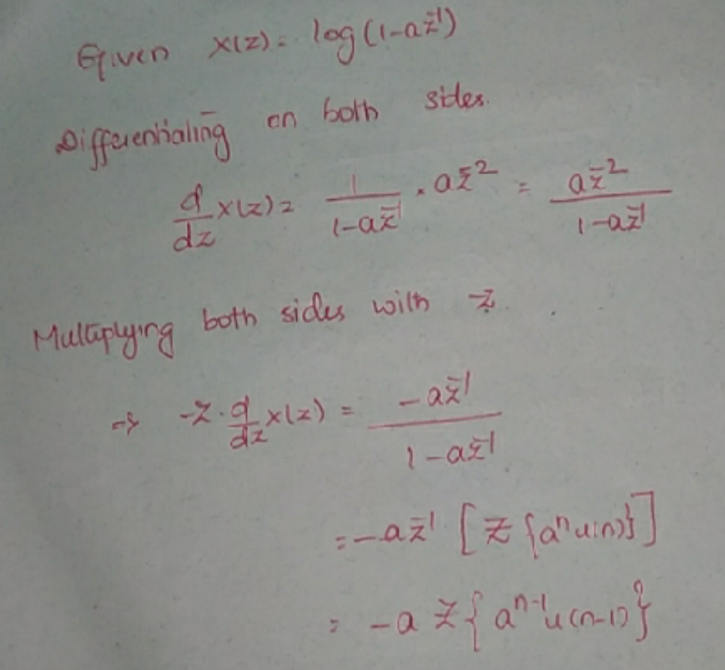 Given X(z) = log(1-az⁻¹)
Differentiating on both sides.
d/dz X(z) = 1/(1-az⁻¹) . az⁻² = az⁻²/(1-az⁻¹)
Multiplying both sides with -z.
⇒ -z. d/dz X(z) = -az⁻¹/(1-az⁻¹)
= -az⁻¹ [Z{aⁿu(n)}]
= -a Z{aⁿ⁻¹u(n-1)}